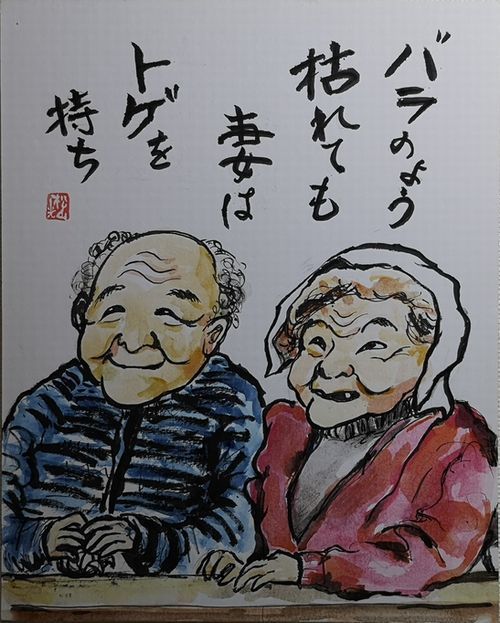 バラのよう
枯れても
妻は
トゲを
持ち